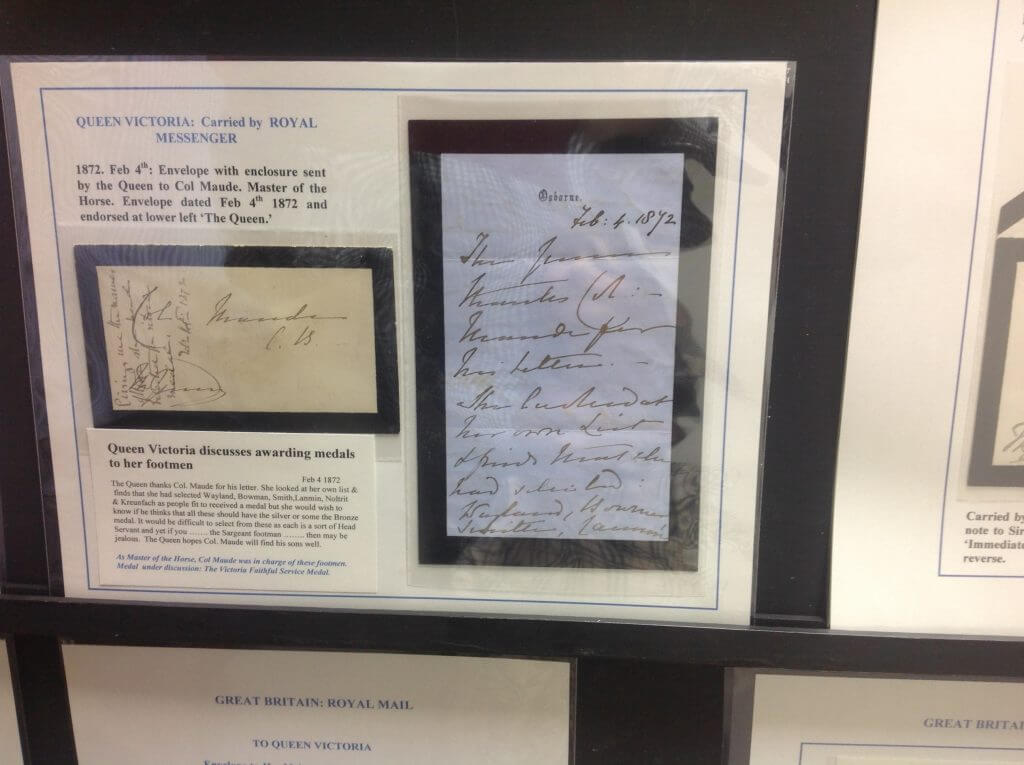 QUEEN VICTORIA: Carried by ROYAL
MESSENGER
1872. Feb 4th: Envelope with enclosure sent
by the Queen to Col Maude. Master of the
Horse. Envelope dated Feb 4th 1872 and
endorsed at lower left 'The Queen.'
Maude
C.B.
Queen Victoria discusses awarding medals
to her footmen
Feb 4 1872
The Queen thanks Col. Maude for his letter. She looked at her own list &
finds that she had selected Wayland, Bowman, Smith,Lanmin, Noltrit
& Kreunfach as people fit to received a medal but she would wish to
know if he thinks that all these should have the silver or some the Bronze
medal. It would be difficult to select from these as each is a sort of Head
Servant and yet if you ....... the Sargeant footman ........ then may be
jealous. The Queen hopes Col. Maude will find his sons well.
As Master of the Horse, Col Maude was in charge of these footmen.
Medal under discussion: The Victoria Faithful Service Medal.
Osborne.
Feb: 4. 1872
The Queen
thanks Col:
Maude for
his letter.
She looked at
her own List
& finds that she
had selected
Wayland, Bowman
Smith, Lanmin
Carried by
note to Sir
'Immediate
reverse.
GREAT BRITAIN: ROYAL MAIL
TO QUEEN VICTORIA
GREAT BRITAI